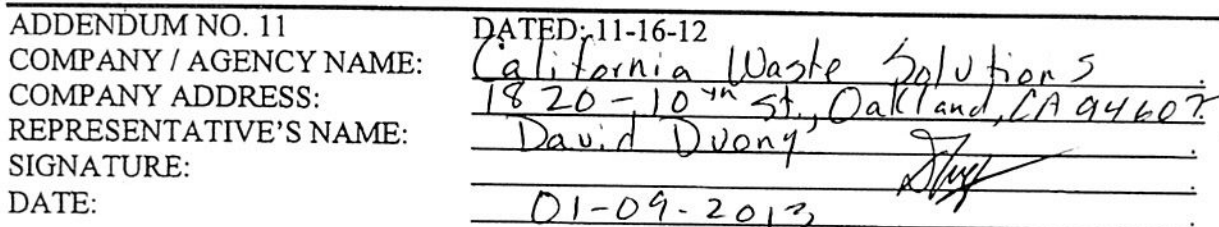 ADDENDUM NO. 11 DATED: 11-16-12
COMPANY / AGENCY NAME: California Waste Solutions.
COMPANY ADDRESS: 1820-10th St., Oakland, CA 94607.
REPRESENTATIVE'S NAME: David Duong.
SIGNATURE: .
DATE: 01-09-2013.